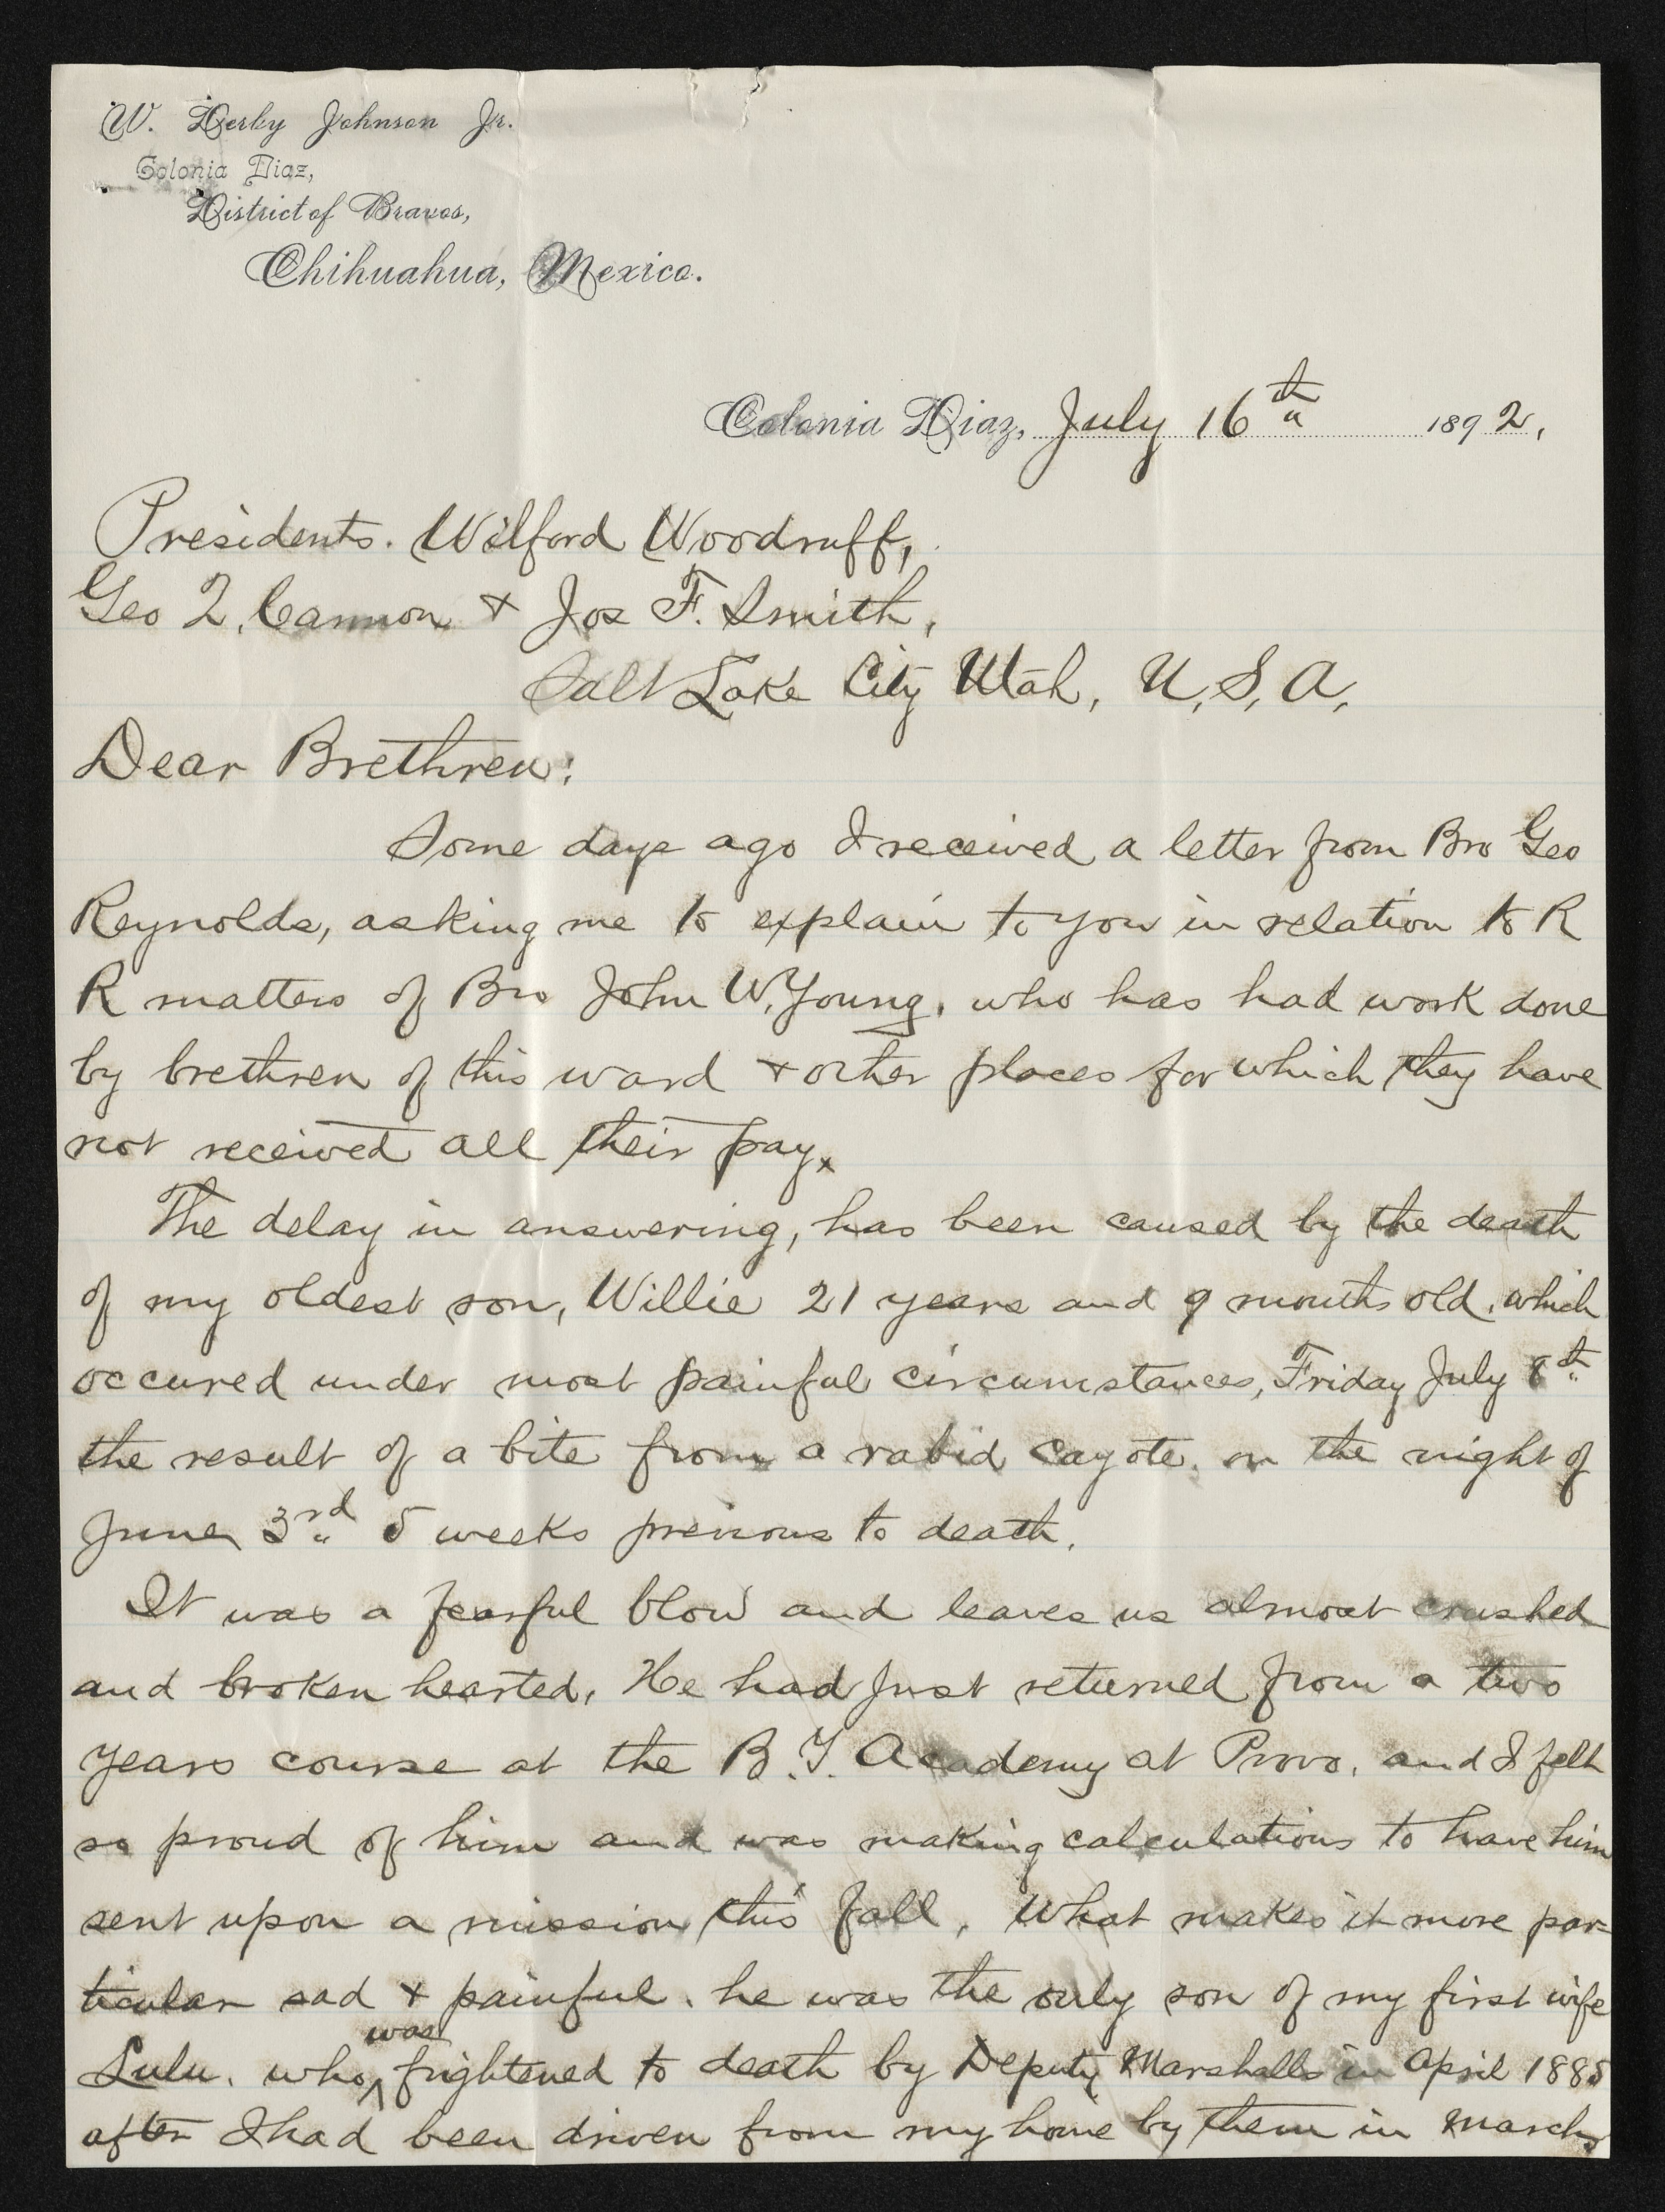 W. Derby Johnson Jr.
Colonia Diaz,
District of Bravos,
Chihuahua, Mexico.
Colonia Diaz, July 16th 1892,
Presidents. Wilford Woodruff,
Geo Q. Cannon & Jos F. Smith,
Salt Lake City Utah, U, S, A,
Dear Brethren:
Some days ago I received a letter from Bro Geo
Reynolds, asking me to explain to you in relation to R
R matters of Bro John W. Young, who has had work done
by brethren of this ward & other places for which they have
not received all their pay.
The delay in answering, has been caused by the death
of my oldest son, Willie 21 years and 9 months old, which
occured under most painful circumstances, Friday July 8th
the result of a bite from a rabid cayote, on the night of
June 3rd 5 weeks previous to death.
It was a fearful blow and leaves us almost crushed
and broken hearted, He had just returned from a two
years course at the B. Y. Academy at Provo, and I felt
so proud of him and was making calculations to have him
sent upon a mission this fall, What makes it more par=
ticular sad & painful, he was the only son of my first wife
was
Lulu, who ^ frightened to death by Deputy Marshalls in April 1885
after I had been driven from my home by them in March,